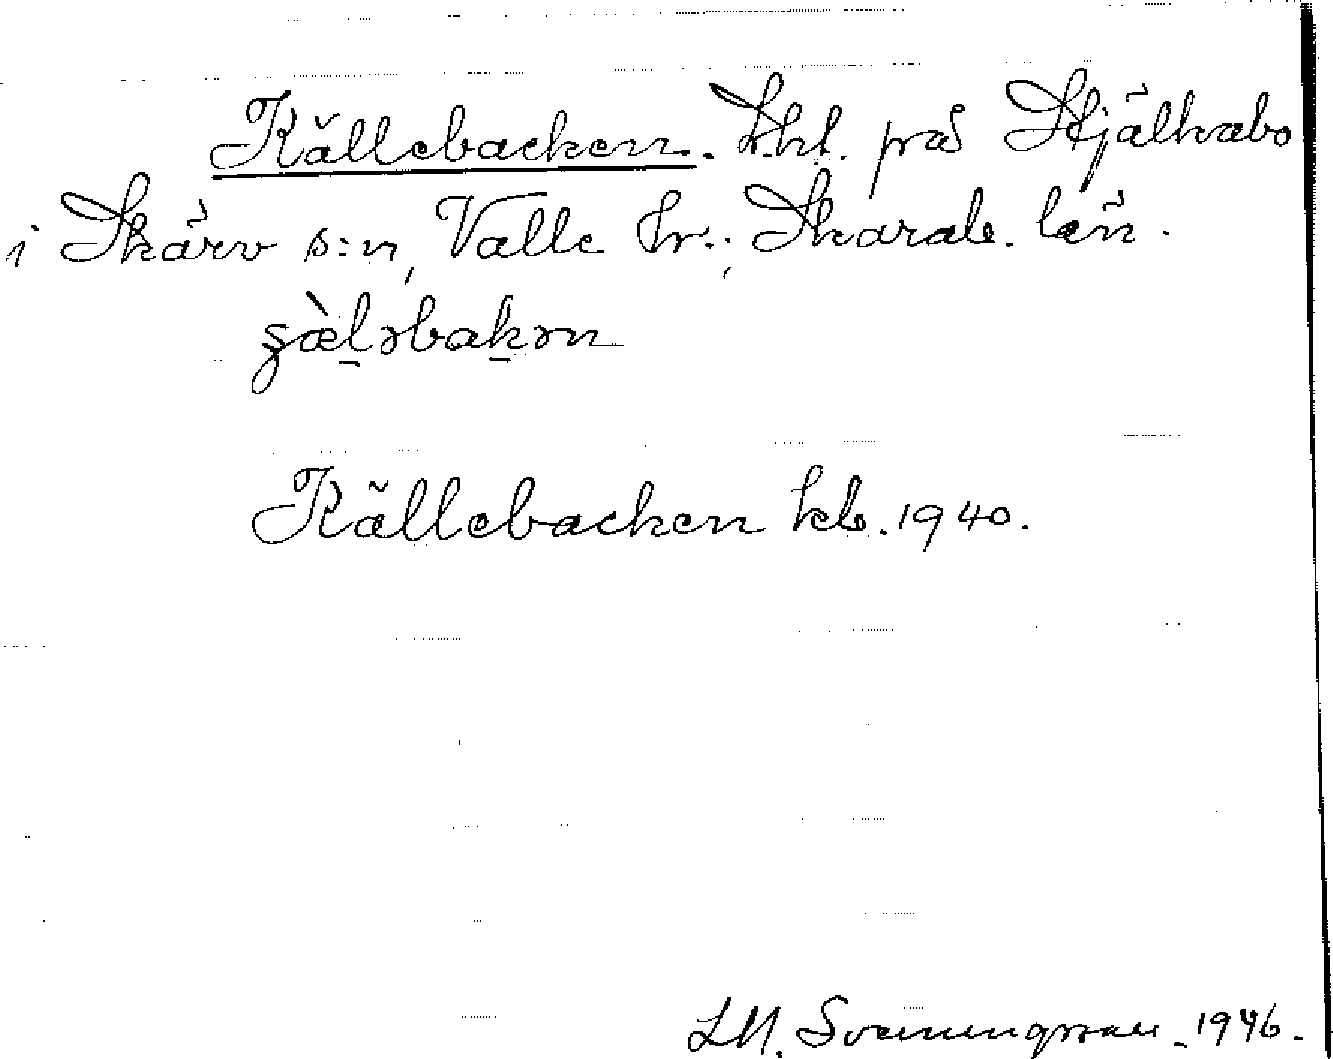 Källebacken. Lht. på Stjälkabo
i Skärv s:n, Valle hr., Skarab. län.
Källebacken kb. 1940.
LM. Svenningsson 1946.